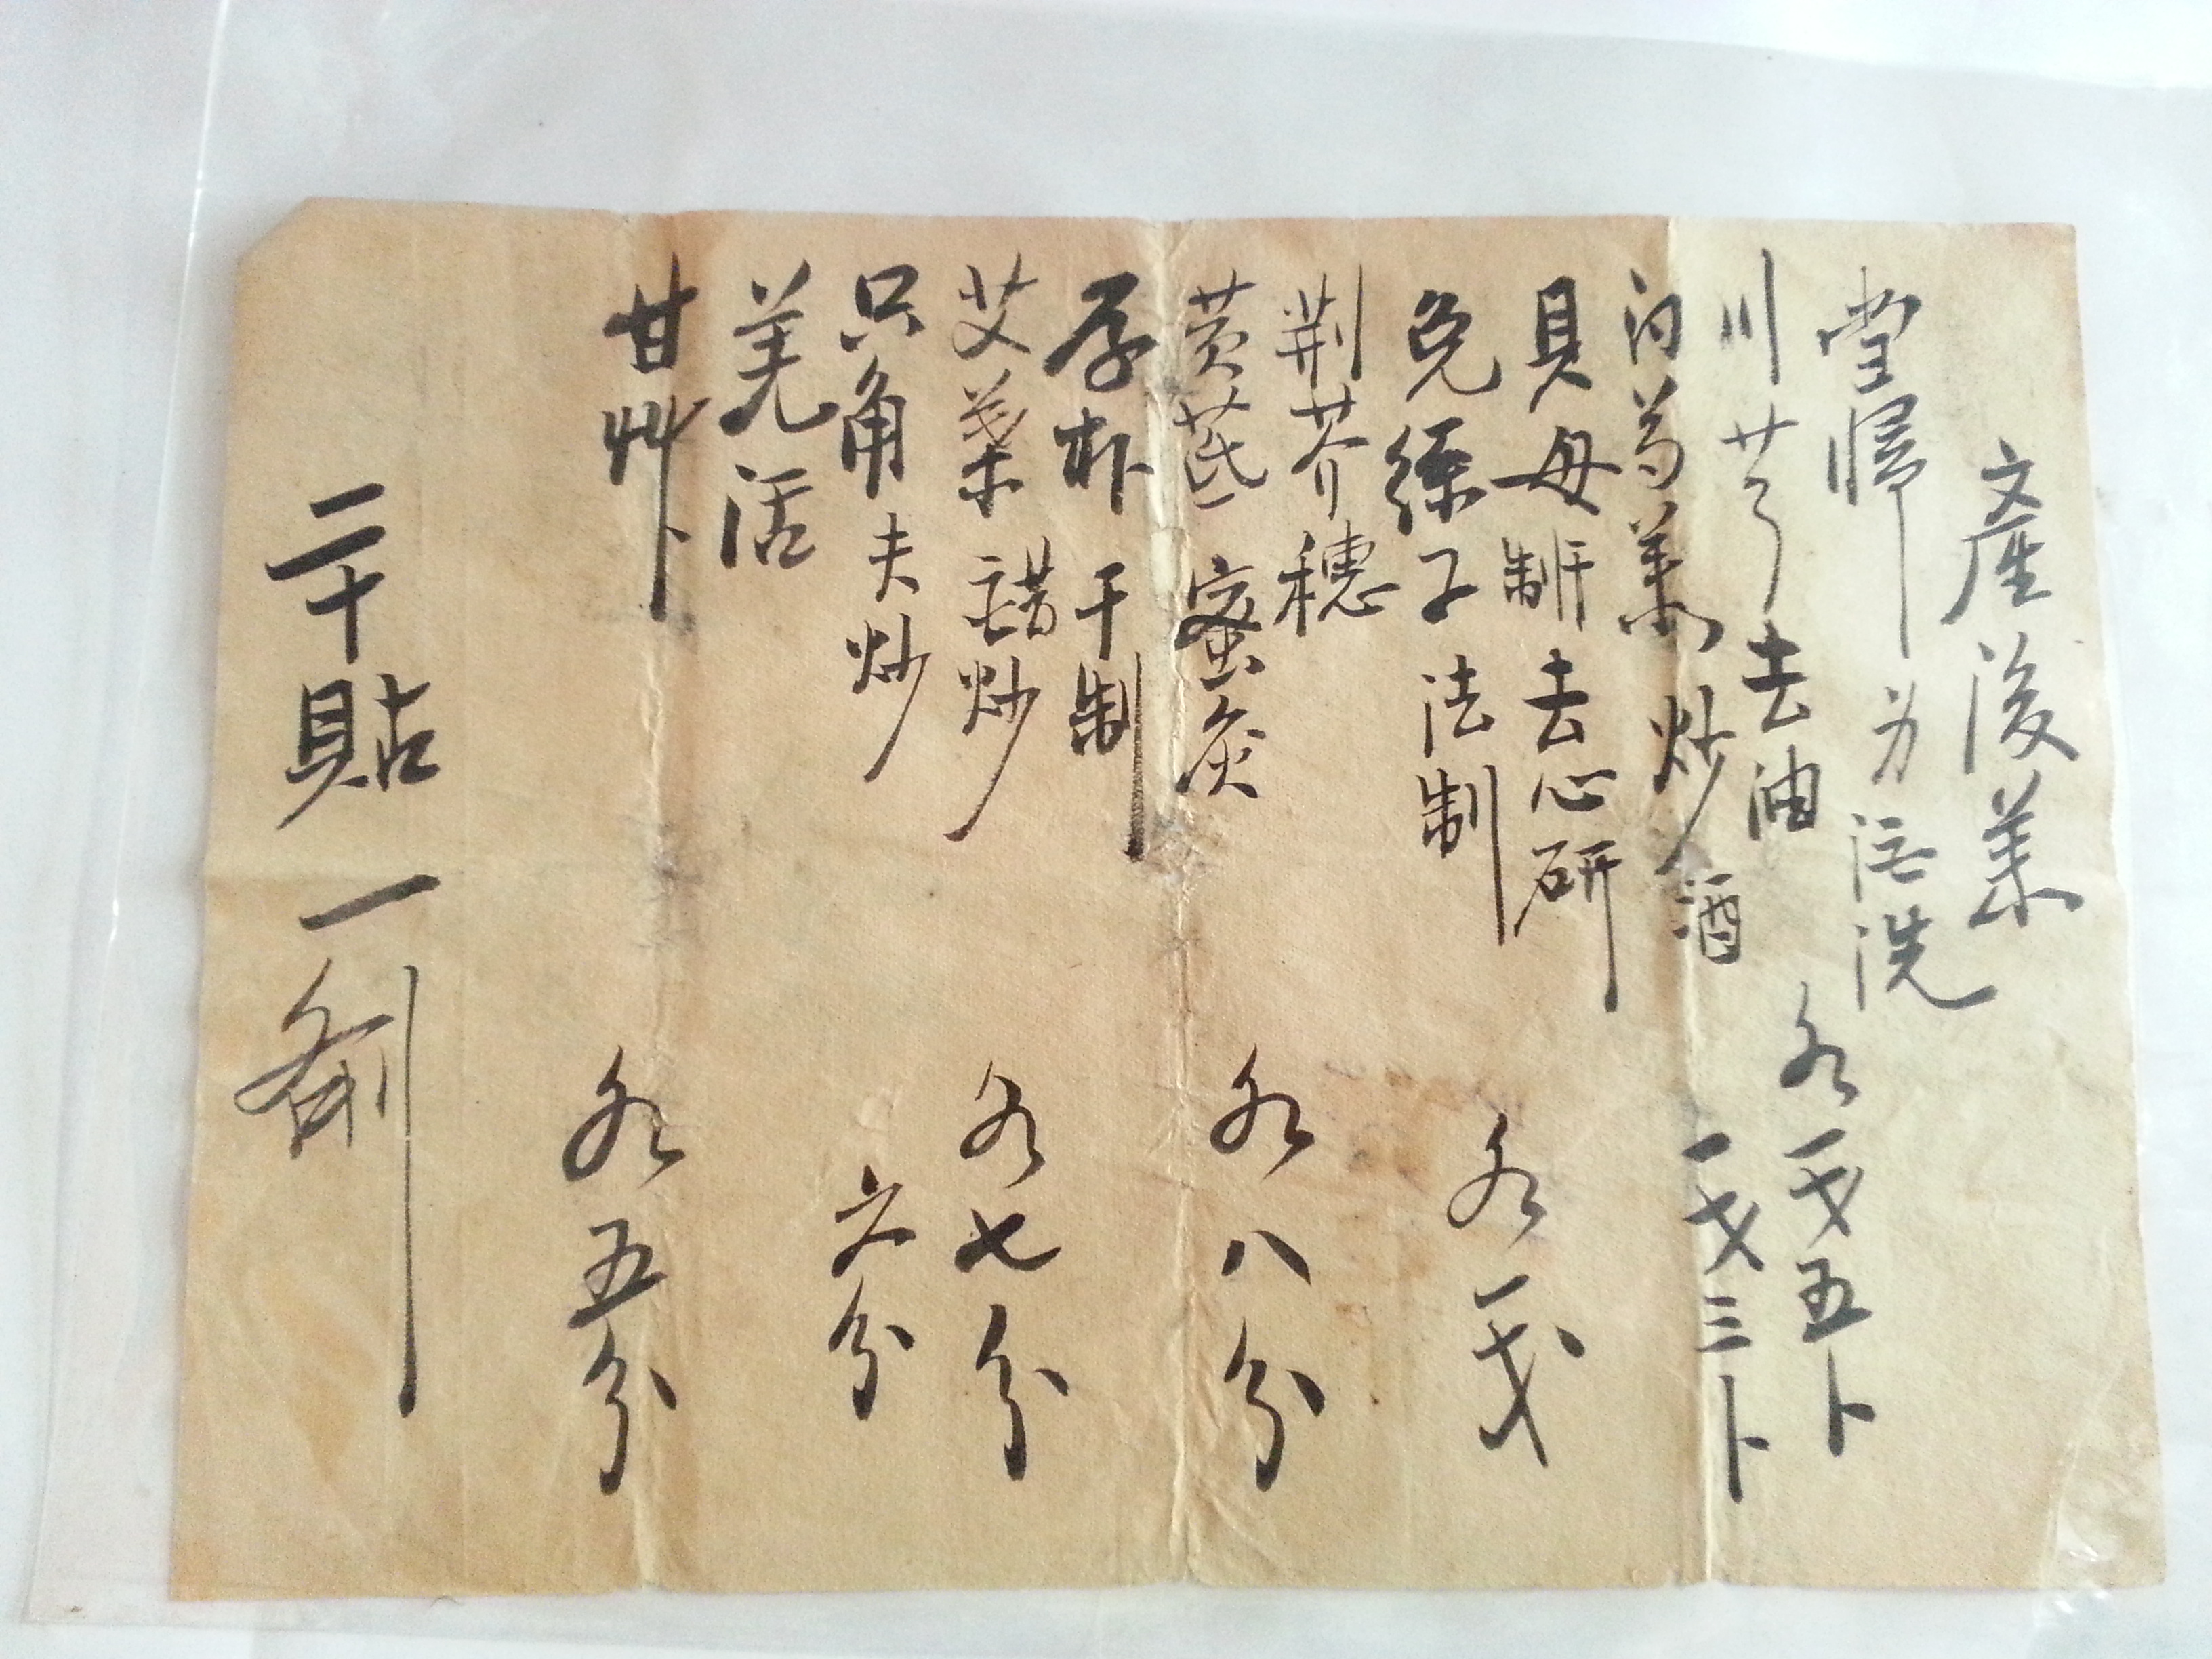 產後藥
當歸 酒洗
川芎 去油 各一戔五卜
白芍藥 炒酒 一戔三卜
貝母 制 去心研
免絲子 法制 各一戔
荆芥穗
黄芪 蜜灸 各八分
厚朴 干制
艾葉 醋炒 各七分
只角 夫炒 六分
羌活
甘艸 各五分
二十貼一劑